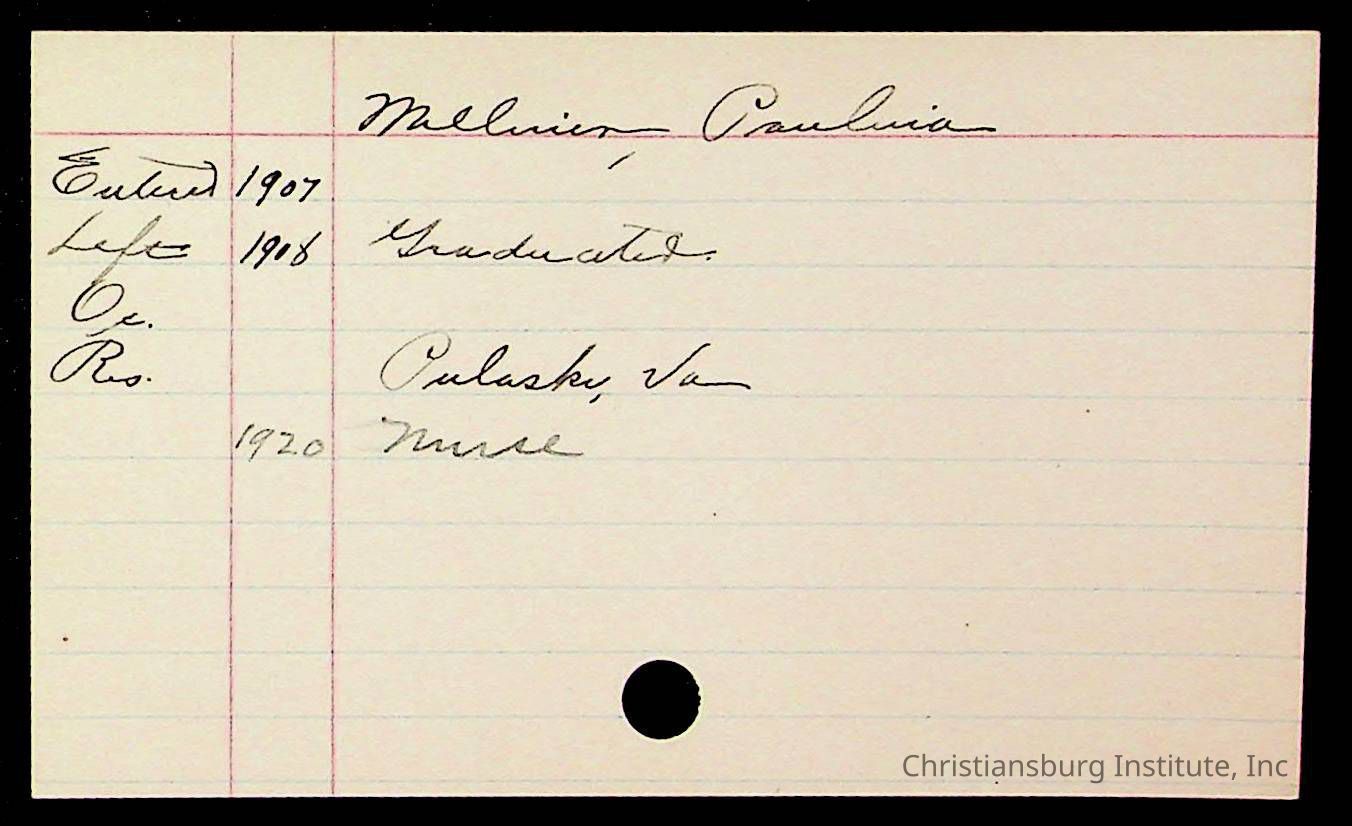 Paulina
Entered 1907
Left 1908 Graduated.
Oc.
Res. Pulasky, Va
1920 Nurse
Christiansburg Institute, Inc